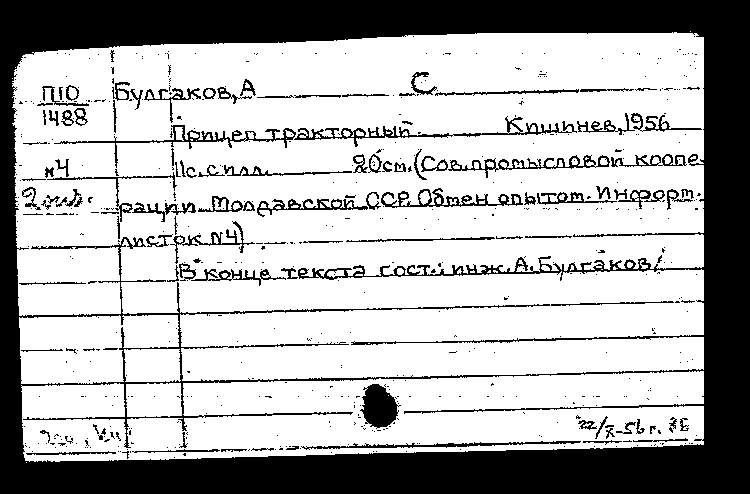 П10 Булгаков, А С
1488
Прицеп тракторный. Кишинев, 1956
N4 11с. с илл. 20см. (Сов. промысловой коопе-
2 экз. рации Молдавской ССР. Обмен опытом. Информ.
листок N4)
В конце текста сост.: инж. А. Булгаков.
22/X-56 г.